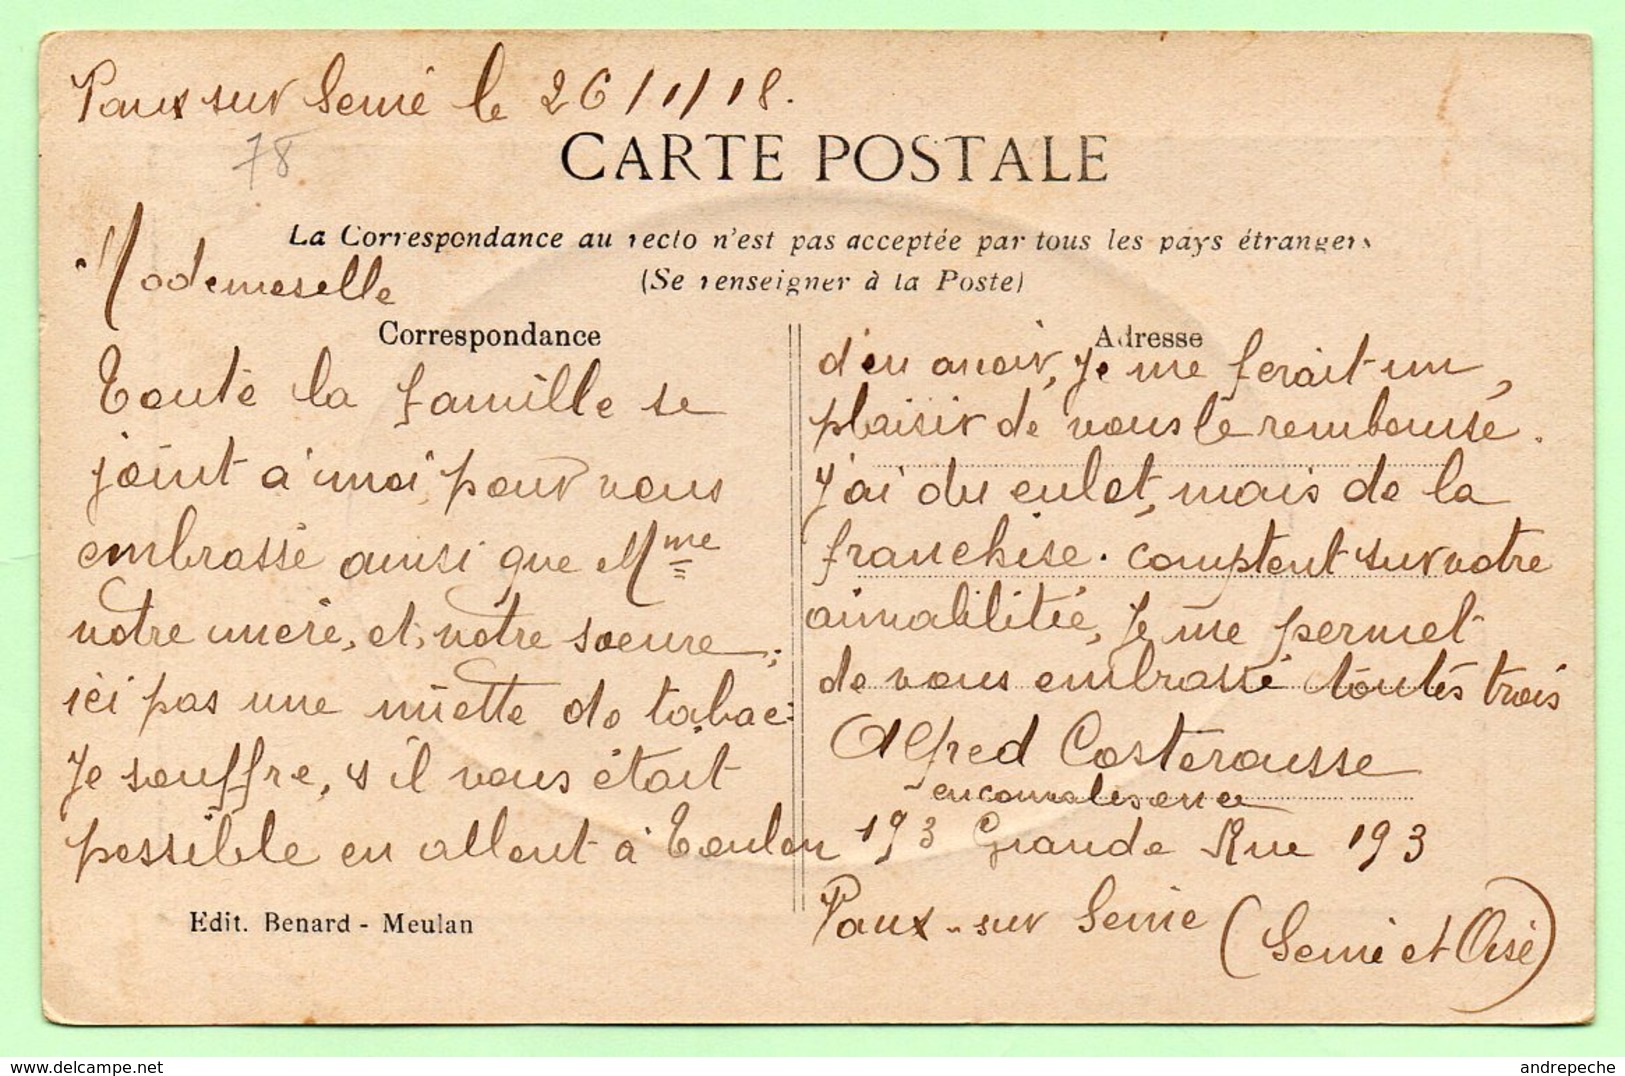 Vaux sur Seine le 26/1/18.
78
CARTE POSTALE
La Correspondance au recto n'est pas acceptée par tous les pays étrangers
(Se renseigner à la Poste)
Mademeselle
Correspondance
Toute la famille se
joint a moi, pour vous
embrasse ainsi que Mme
votre mere, et, votre soeure,
ici pas une miette do tabac:
Je souffre, s il vous était
possible en allent à Toulon
Edit. Benard - Meulan
Adresse
d'en avoir, Je me ferait un
plaisir de vous le rembourse.
J'ai du culot, mais de la
franchise. comptent sur votre
aimabilitie, Je me permet
de vous embrasse toutes trois
Alfred Costerousse
en convalesence
193 Grande Rue 193
Vaux-sur Seine (Seine et Oise)
andrepeche